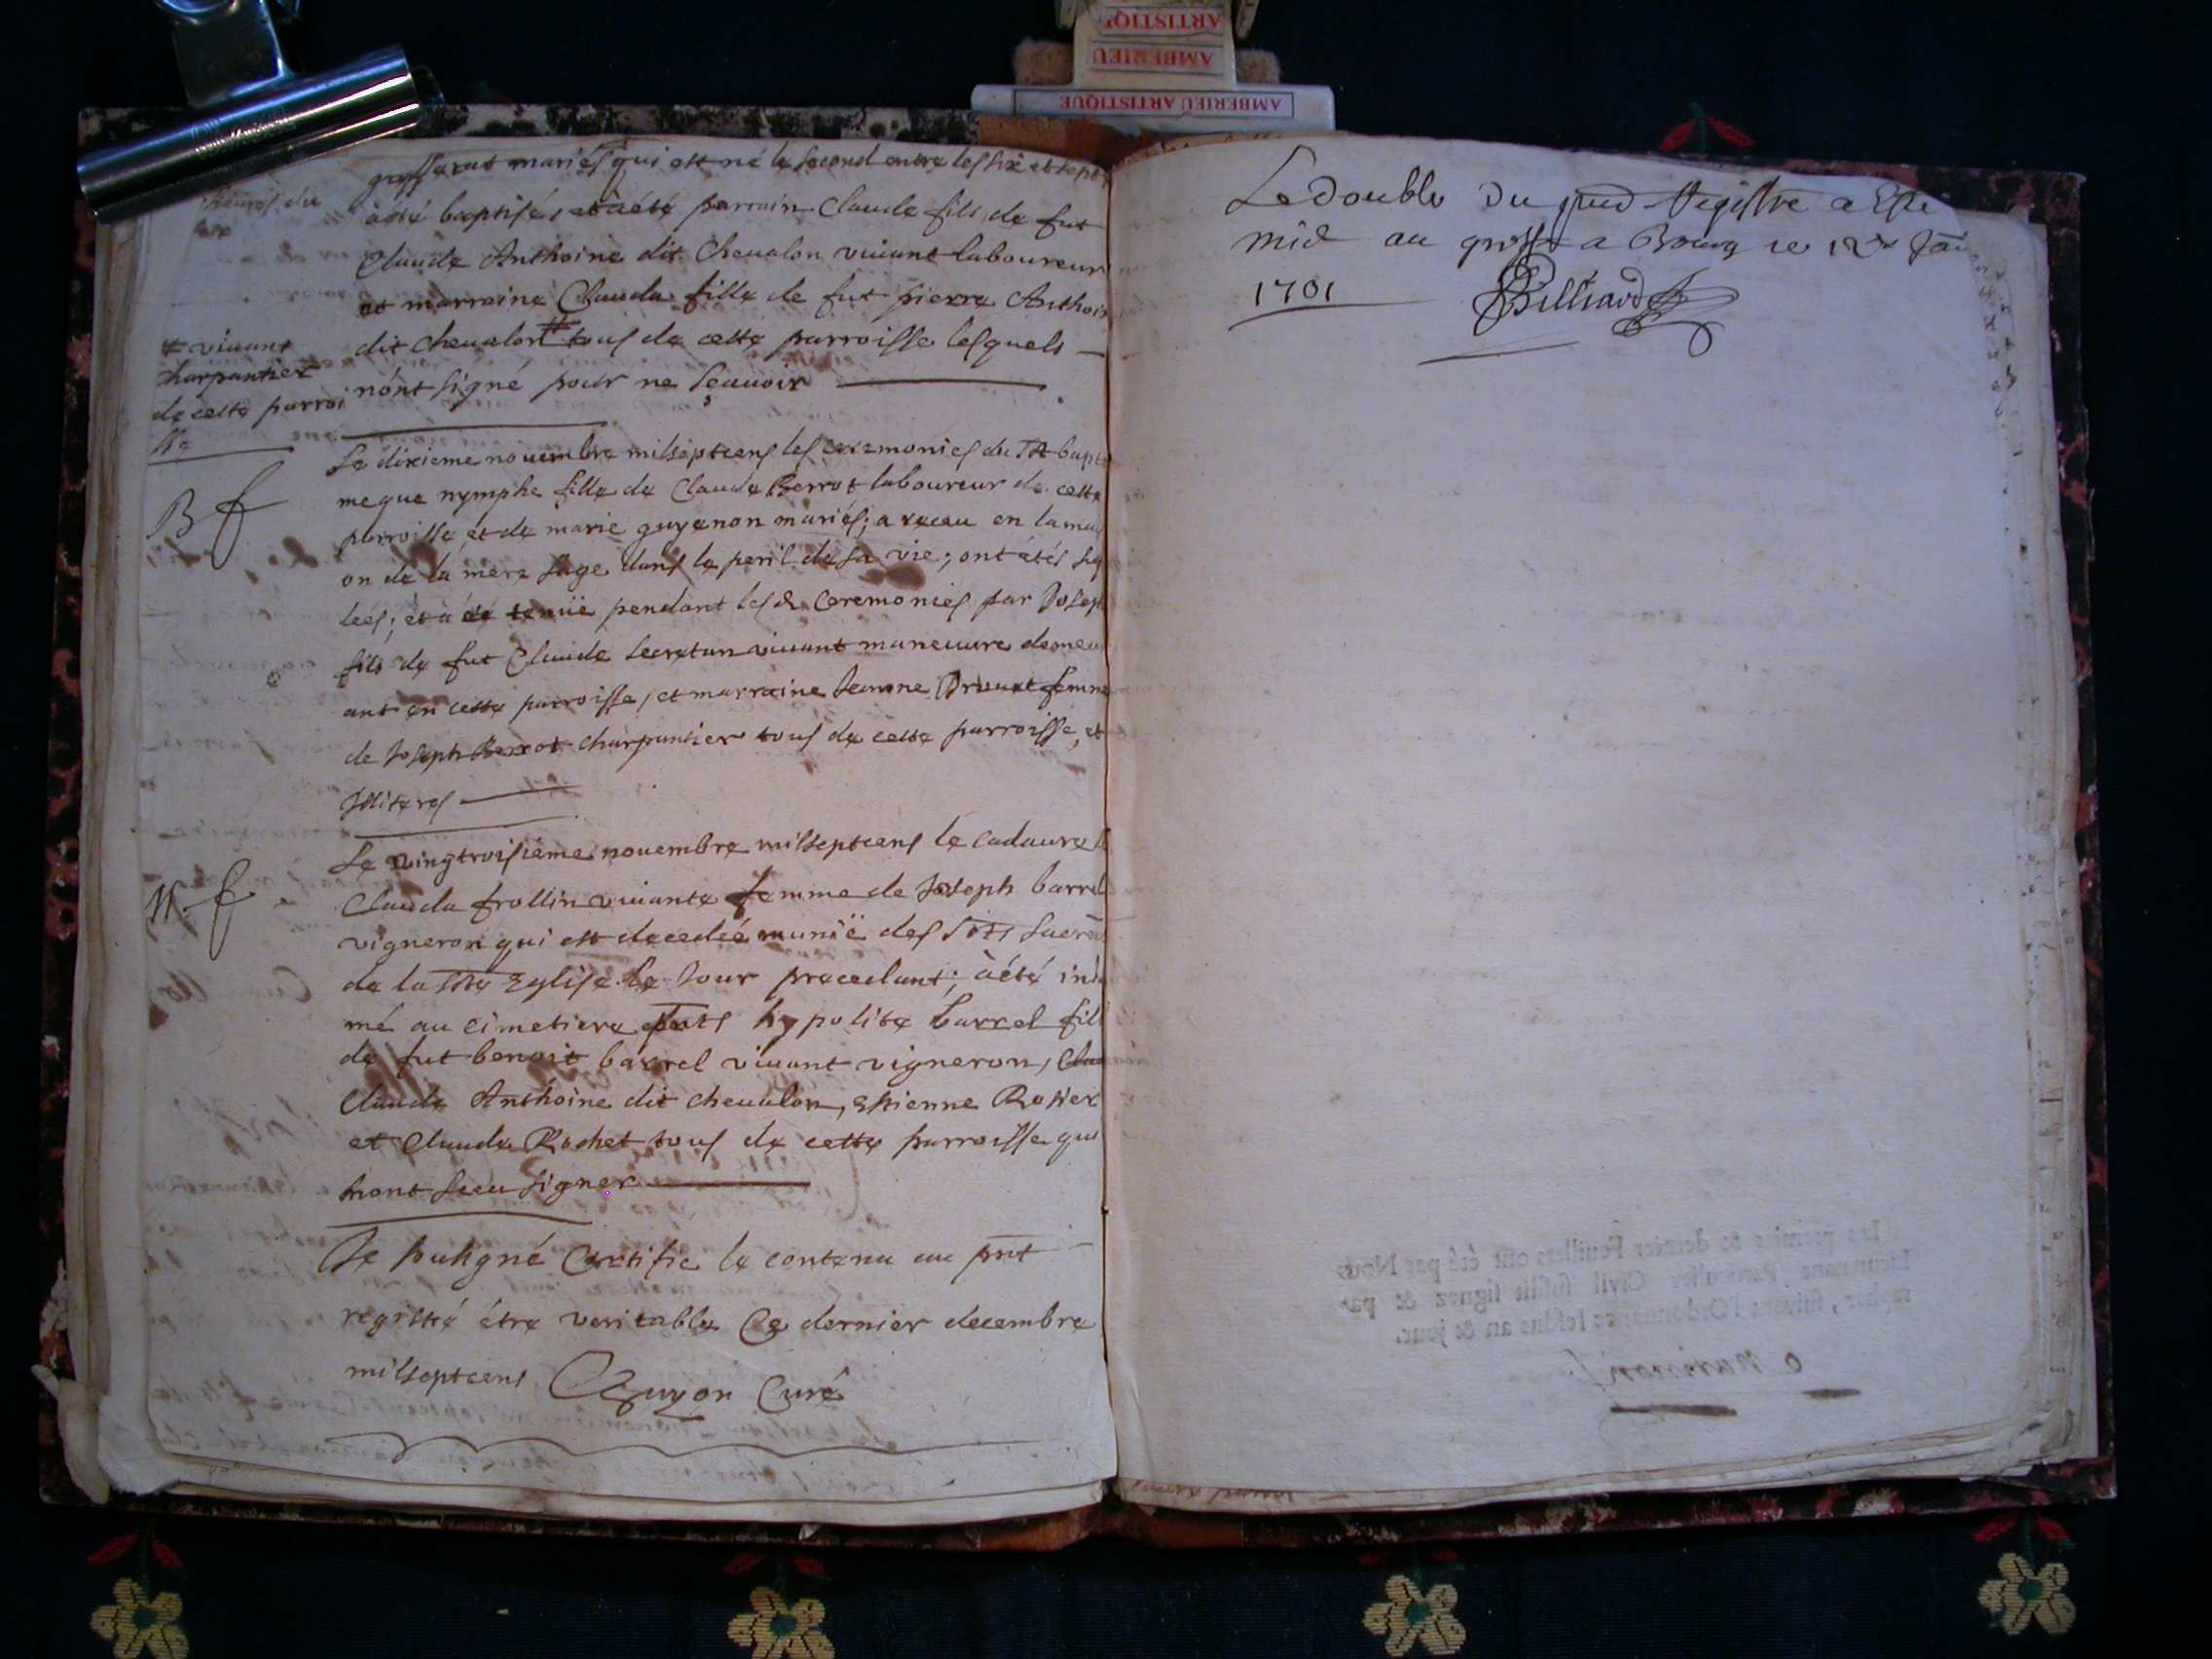 ARTISTIQ
AMBERIEU
AMBERIEU ARTISTIQUE
mariés qui est né le second entre les six et sept
heures du
àesté baptisé, et àeté parrain Claude fils de fut
Claude Anthoine dit Cheualon viuant laboureur
et marraine Clauda fille de fut pierre Anthoin
dit cheualon # tous de cette parroisse lesquels
# viuant
charpantier
de cette parroi
sse
nónt signé pour ne sçauoir
Le dixieme nouembre milseptcens les ceremonies du St bapte
B f
me que nymphe fille de Claude Berrot laboureur de cette
parroisse, et de marie guyenon mariés; a receu en la mai
on de la mere sage dans le peril de sa vie; ont étés sup
leés; et à été tenuë pendant les d. ceremonies par Joseph
fils de fut Claude secretan viuant maneuure demeu
ant en cette parroisse, et marraine Jeanne femme
de Joseph Berrot charpantier tous de cette parroisse, et
Illiteres
Le vingtroisiéme nouembre milseptcens le cadaure
M. f
Clauda frollin viuante femme de Joseph barrel
vigneron qui est decedeé munië des Sts sacre
de la Ste Eglise le Jour precedant; àété inhu
mé au cimetiere pnts hypolite barrel fils
de fut benoit barrel viuant vigneron, Clau
Claude Anthoine dit cheualon, Etienne Rosier
et Claude Rochet tous de cette parroisse qui
nont sceu signer
Je souligné Certifie le contenu au pnt
registre étre veritable Ce dernier decembre
milseptcens Guyon Curé
Le double du pnt Registre a Esté
mis au greffe a Bourg le 12e Jan
1701 Billiard
Les premier & dernier Feuillets ont été par Nous
Lieutenant Particulier Civil susdit signez & par
raphez, suivant l'Ordonnance lesdits an & jour.